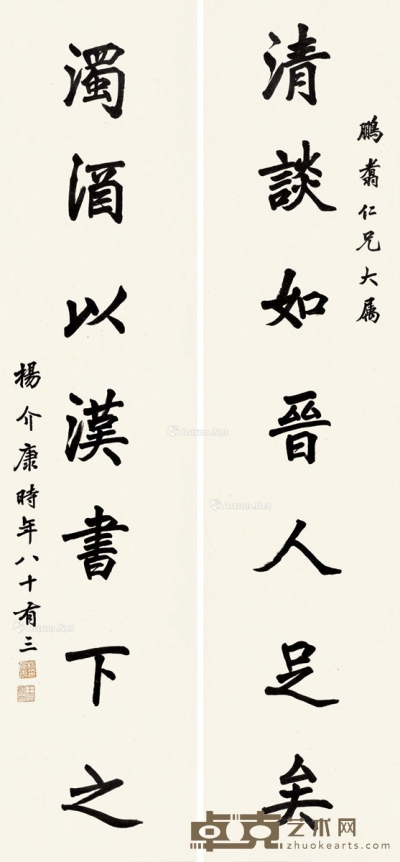 鵬翥仁兄大属
清談如晉人足矣
濁酒以漢書下之
楊介康時年八十有三
卓克艺术网
zhuokearts.com